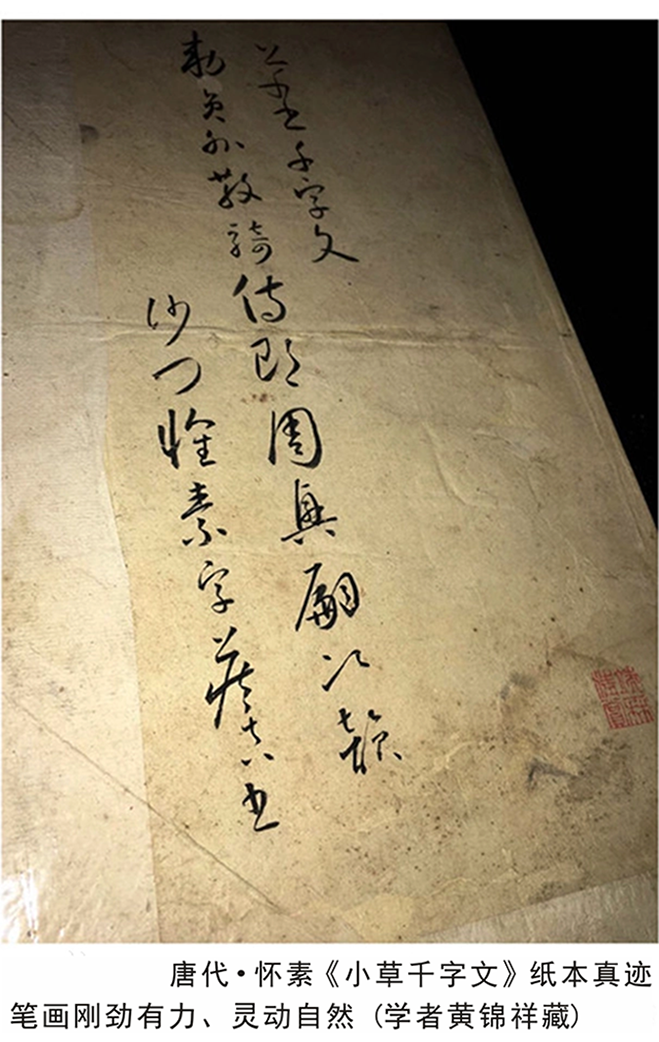 草書千字文
勅員外散騎侍郎周興嗣次韻
沙門懷素字藏真書
唐代·怀素《小草千字文》纸本真迹
笔画刚劲有力、灵动自然 (学者黄锦祥藏)